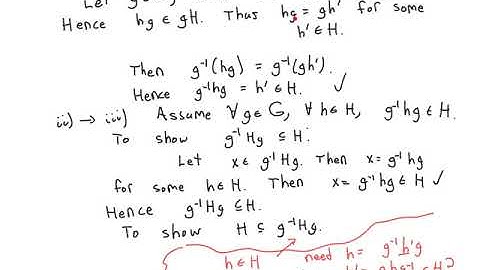 Let g
Hence hg ∈ gH. Thus hg = gh' for some
h' ∈ H.
Then g⁻¹(hg) = g⁻¹(gh').
Hence g⁻¹hg = h' ∈ H. ✓
ii) → iii) Assume ∀g∈G, ∀h∈H, g⁻¹hg ∈ H.
To show g⁻¹Hg ⊆ H.
Let x ∈ g⁻¹Hg. Then x = g⁻¹hg
for some h∈H. Then x = g⁻¹hg ∈ H ✓
Hence g⁻¹Hg ⊆ H.
To show H ⊆ g⁻¹Hg.
h ∈ H need h = g⁻¹h'g